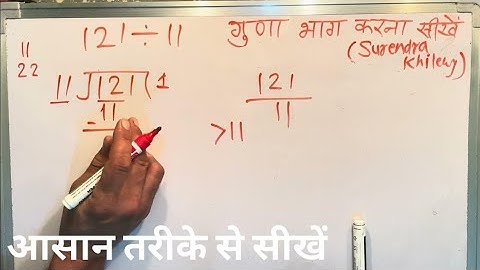 121÷11 गुणा भाग करना सीखें
(Surendra Khilery)
11
22
11√121(1
-11
121
11
>11
आसान तरीके से सीखें